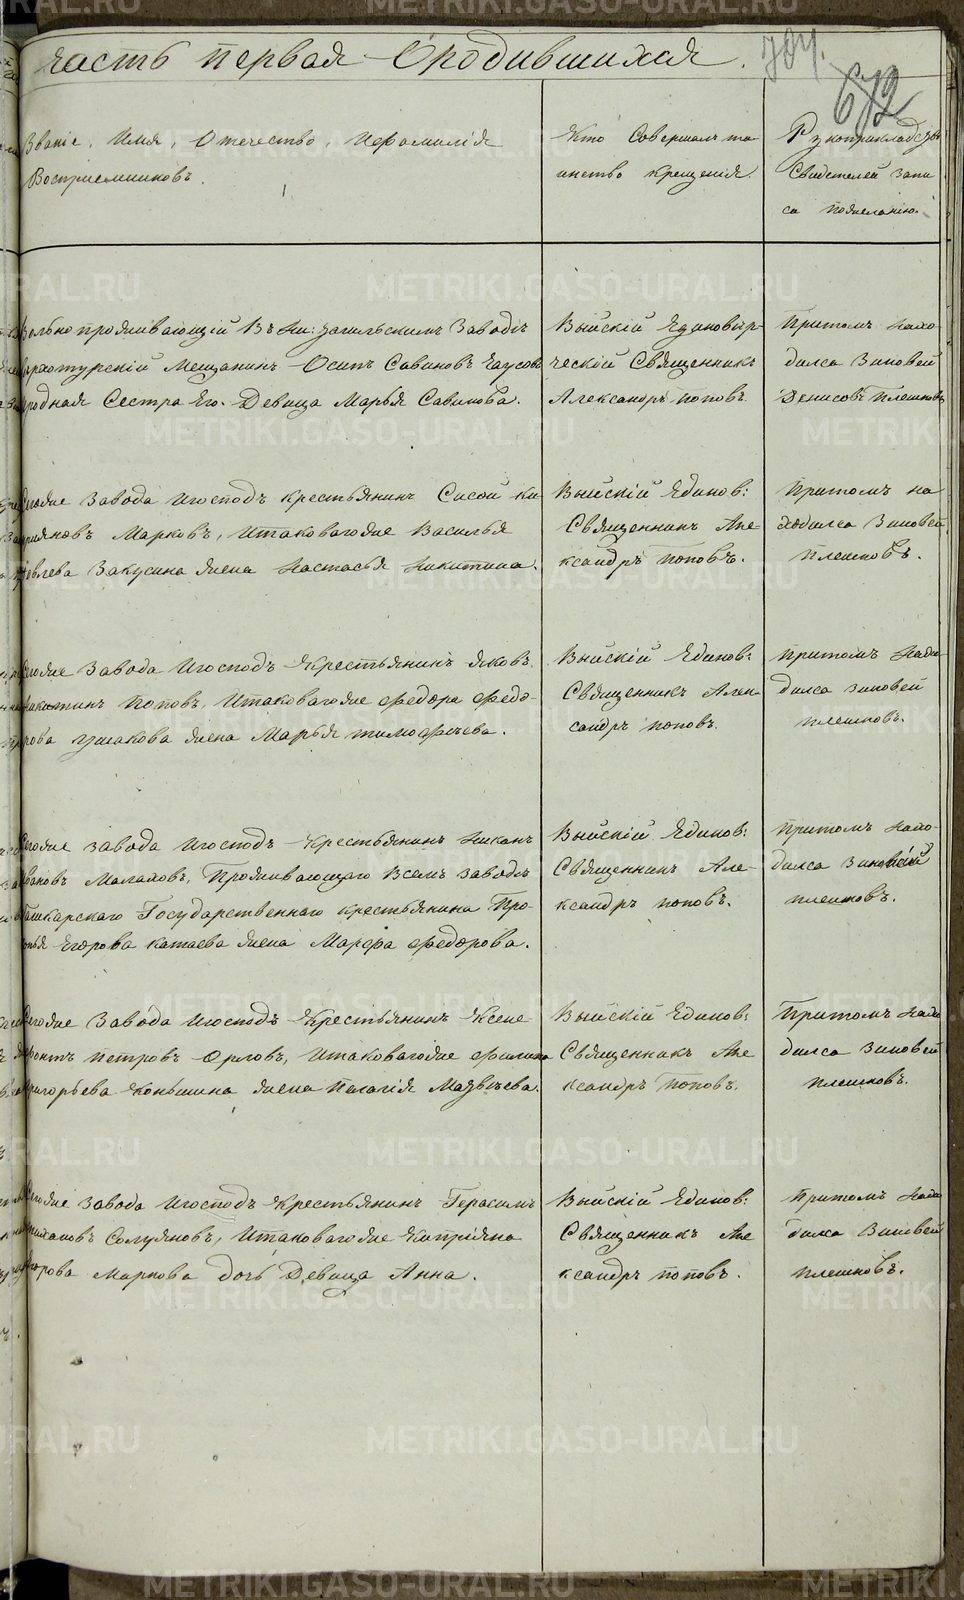 Часть первая О родившихся.
704.
672
Званіе, Имя, Отечество, И фамилія
Воспріемниковъ.
Кто Совершалъ та
инство крещенія
Рукоприкладство
Свидетелей запи
си по желанію.
Вольнопроживающій В Ни: Тагильскомъ Заводѣ
Верхотурскій Мещанинъ Осипъ Савиновъ
родная Сестра Его Девица Марья Савинова.
Выйскій Единовѣр-
ческій Священникъ
Александръ Поповъ
Притомъ нахо-
дился Зиновей
Денисовъ Плешковъ
Сегоже Завода Игосподъ Крестьянинъ Сысой Ки
прияновъ Марковъ, Итаковагоже Василья
Закусина жена Настасья Никитина.
Выйскій Единов:
Священникъ Але
ксандръ Поповъ.
Притомъ на
ходился Зиновей
Плешковъ.
Сегоже Завода Игосподъ Крестьянинъ Яковъ
Никитинъ Поповъ, Итаковагоже Федора Федо-
рова Ушакова жена Марья Тимофеева.
Выйскій Единов:
Священникъ Алек-
сандръ Поповъ.
Притомъ Нахо-
дился Зиновей
Плешковъ.
Сегоже завода Игосподъ Крестьянинъ Никан
Ивановъ Малаховъ, Проживающаго Всемъ заводѣ
Государственнаго крестьянина Про-
Егорова Катаева жена Марфа Федорова.
Выйскій Единов:
Священникъ Але-
ксандръ Поповъ.
Притомъ Нахо-
дился Зиновей
Плешковъ.
Сегоже Завода Игосподъ Крестьянинъ Ксено
фонтъ Петровъ Орловъ, Итаковагоже Филипа
Григорьева Коньшина жена Пелагія Матвѣева.
Выйскій Единов:
Священникъ Але
ксандръ Поповъ.
Притомъ Нахо
дился Зиновей
Плешковъ.
Сегоже Завода Игосподъ Крестьянинъ Герасимъ
Солуяновъ, Итаковагоже Киприяна
Егорова Маркова дочь Девица Анна.
Выйскій Единов:
Священникъ Але
ксандръ Поповъ.
Притомъ Нахо
дился Зиновей
Плешковъ.
METRIKI.GASO-URAL.RU